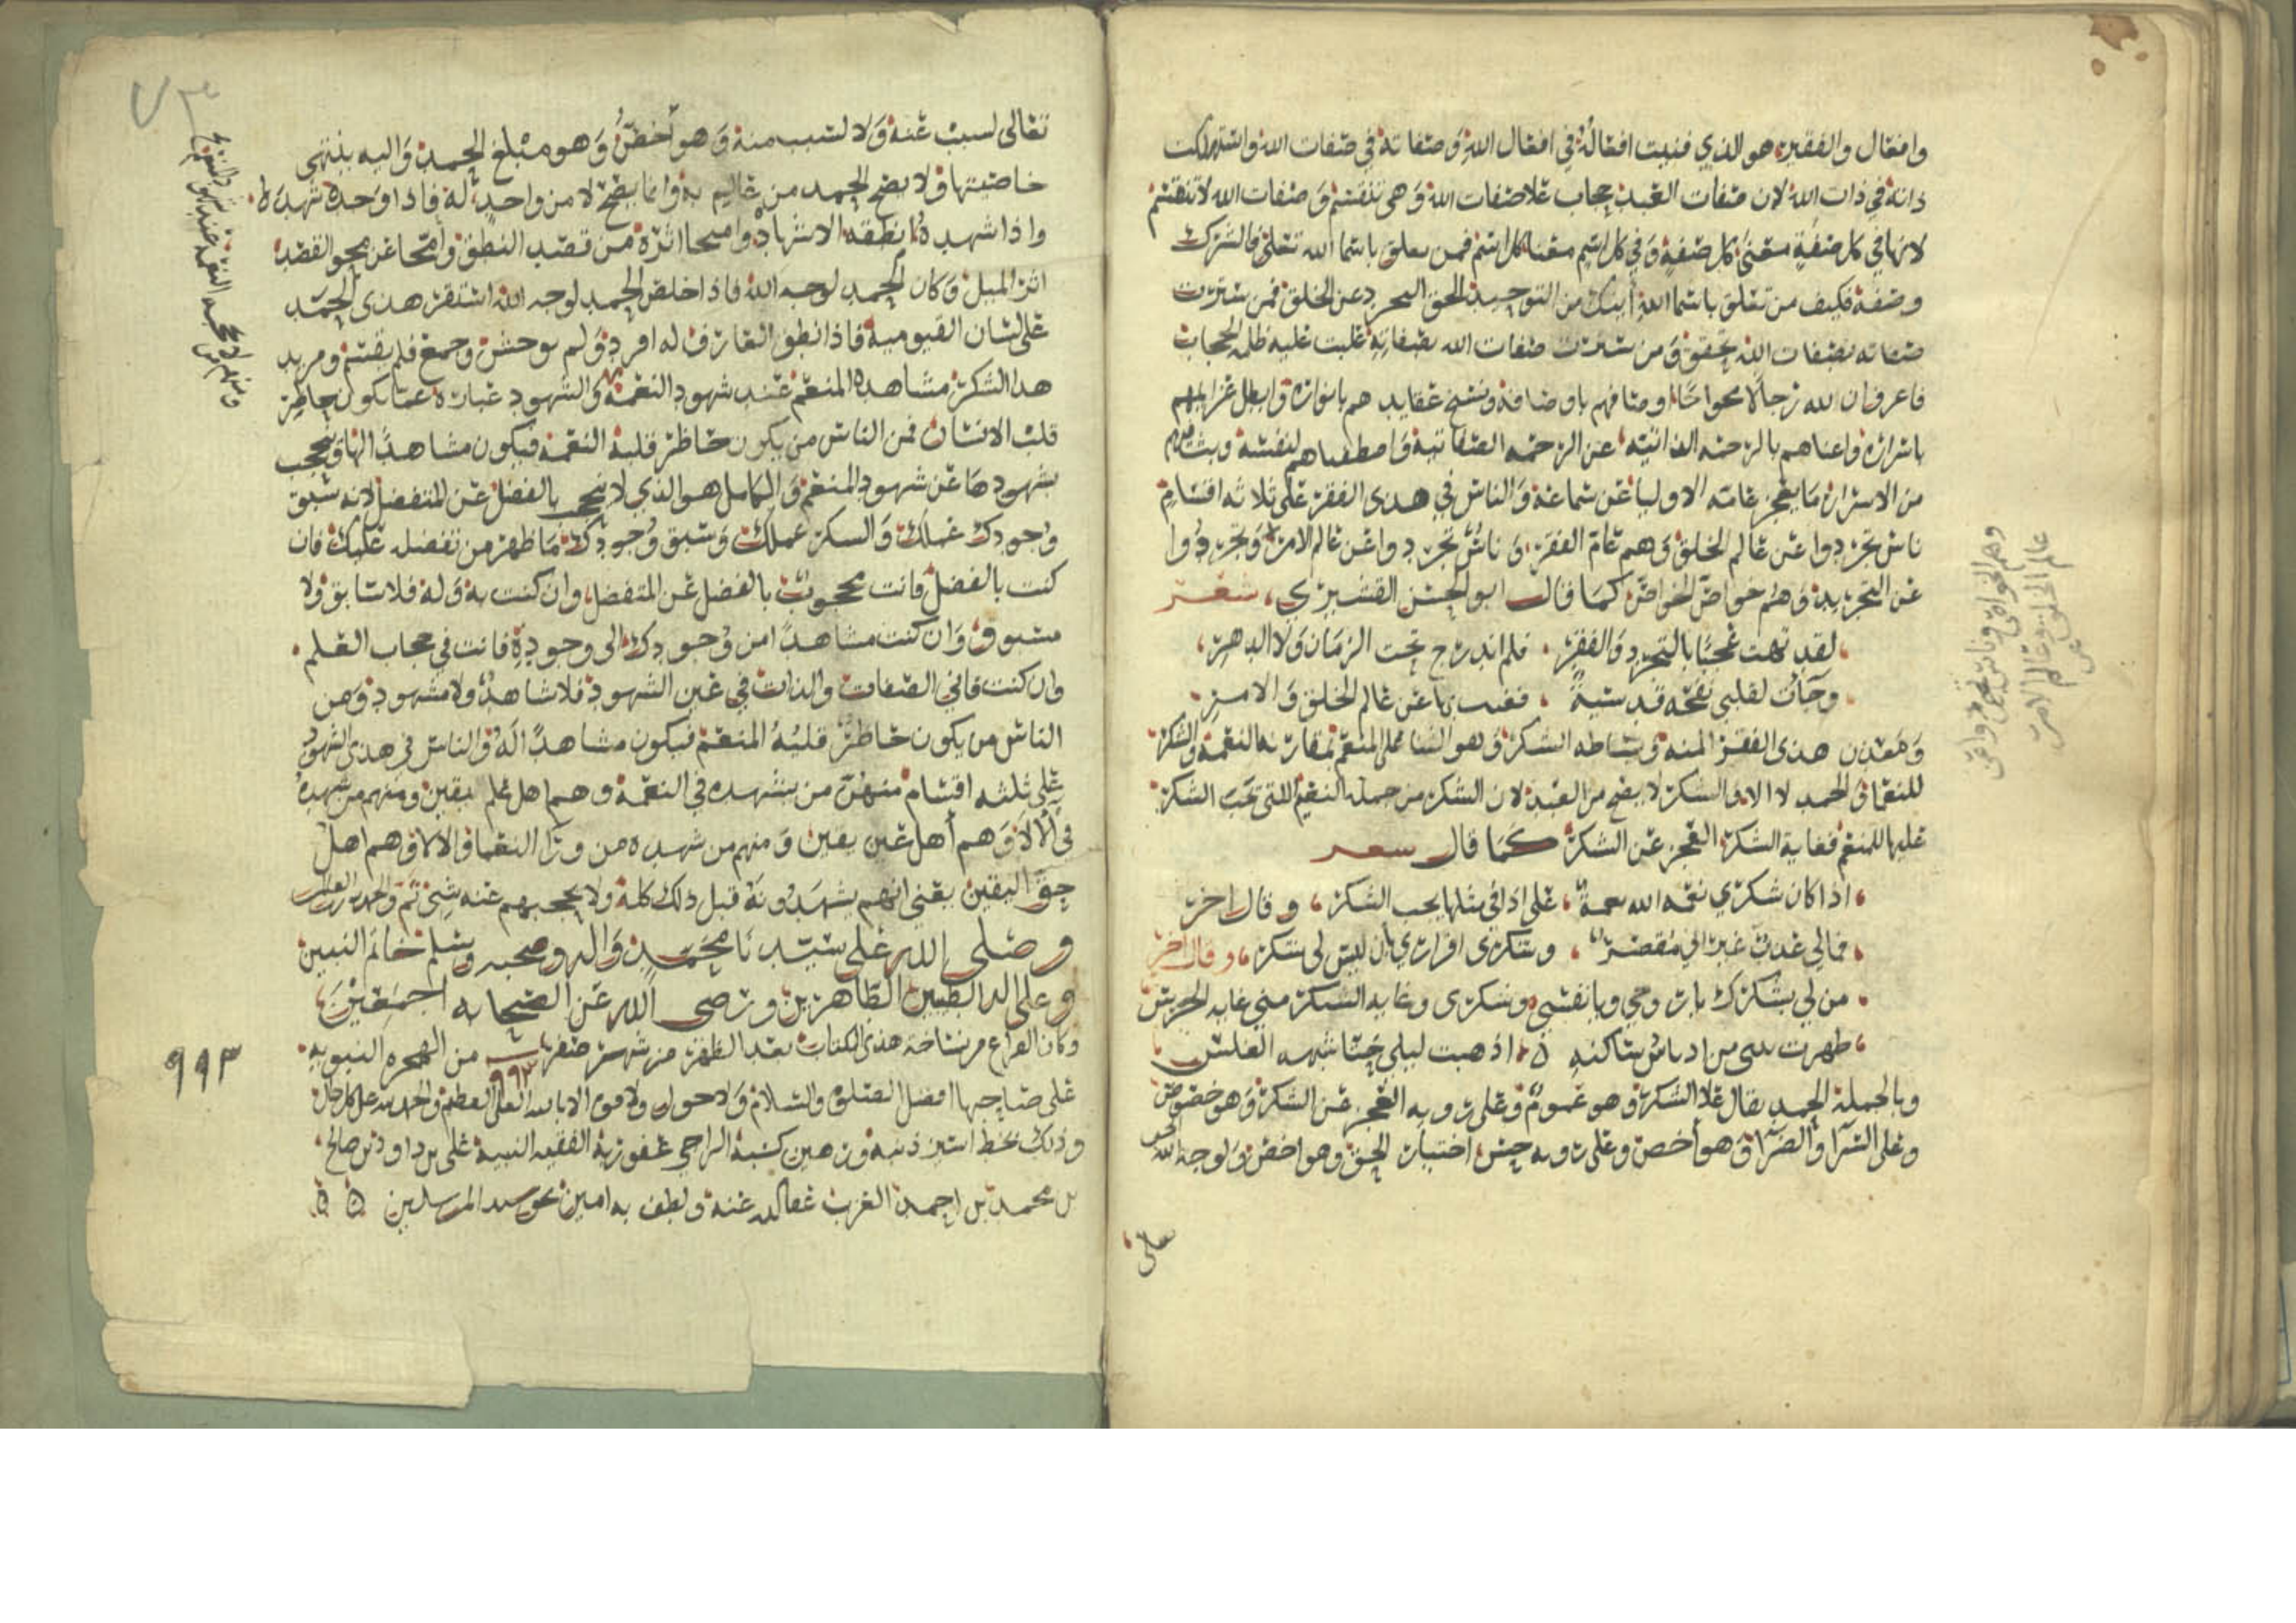 وافعال والفقير هو الذي فنيت افعاله في افعال الله وصفاته في صفات الله واستهلكت
ذاته في ذات الله لان صفات العبد حجاب علا صفات الله وهي تنقسم وصفات الله لا تنقسم
لانها في كل صفة معنى كل صفة وفي كل اسم معنا كل اسم فمن تعلق باسما الله تعلق فالشرك
وصفه فكيف من تعلق باسما الله اينك من التوحيد الحق التجرد عن الخلق فمن سترت
صفاته بصفات الله تحقق ومن سترت صفات الله بصفاته غلبت عليه ظلم الحجاب
فاعرف ان لله رجالا اوصافهم باوصافه ونسخ عقايدهم بانواره وابطل
باسراره واغناهم بالرحمه الذاتيه عن الرحمه الصفاتيه واصطفاهم لنفسه
من الاسرار ما يعجز عامة الاوليا عن سماعه والناس في هذي الفقر على ثلاثه اقسام
ناس تجردوا عن عالم الخلق وهم عام الفقر وناس تجردوا عن عالم الامر وتجردوا
عن التجريد وهم خواص الخواص كما قال ابو الحسن القشيري شعر
لقد تهت عجبا بالتجرد والفقر فلم اندرج تحت الزمان ولا الدهر
وجآت لقلبي نفحه قدسية فغبت بها عن عالم الخلق والامر
ومعدن هذي الفقر المنه وبساطه الشكر وهو الثنا على المنعم والشكر
للنعما والحمد لا الا والشكر لا يصح من العبد لان الشكر من جمله النعيم التي تحب الشكر
عليها للمنعم فغاية الشكر العجز عن الشكر كما قال شعر
اذا كان شكري نعمه الله نعمة على اذا في مثلها يجب الشكر وقال اخر
فمالي عذر غير اني مقصر وشكري اقراري بان ليس لي شكر وقال اخر
من لي بشكرك يا روحي ويا نفسي وشكري وغايه الشكر مني غايه الخرس
اذ هبت ليلى
وبالجملة الحمد يقال علا الشكر وهو عموم وعلى رويه العجز عن الشكر وهو خصوص
وعلى السرآ والضرآ وهو اخص وعلى رويه حسن اختيار الحق وهو اخص ولوجه الله
على
وهم الخواص وناس تجردوا عن
عالم الخلق وعالم الامر
تعالى لسبب عنه ولا لسبب منه وهو اخص وهو مبلغ الحمد واليه ينتهي
خاصيتها ولا يصح الحمد من عالم به وانما يصح لا من واحد له فاذا وحده شهده
واذا شهده انطقه الاشهاد وامحا اثره من قصد النطق وامحا عن محو القصد
اثر الميل وكان الحمد لوجه الله فاذا خلص الحمد لوجه الله استقر هذي الحمد
على لسان القيومية فاذا نطق العارف له افرد ولم يوحش وجمع فلم يقسم ومريد
هذا الشكر مشاهده المنعم عند شهود النعمه والشهود عبارة عما يكون حاظر
قلب الانسان فمن الناس من يكون حاظر قلبه النعمه فيكون مشاهدا لها ويحجب
بشهودها عن شهود المنعم والكامل هو الذي لا يحجب بالفضل عن المتفضل لانه سبق
وجودك عملك والسكر عملك وسبق وجودك ما ظهر من تفضله عليك فان
كنت بالفضل فانت محجوب بالفضل عن المتفضل وان كنت به وله فلا سابق ولا
مسبوق وان كنت مشاهدا من وجودك الى وجوده فانت في حجاب العلم
وان كنت فاني الصفات والذات في عين الشهود فلا شاهد ولا مشهود ومن
الناس من يكون حاظر قلبه المنعم فيكون مشاهدا له والناس في هذي الشهود
على ثلثه اقسام منهم من يشهده في النعمة وهم اهل علم يقين ومنهم من شهده
في الالا وهم اهل عين يقين ومنهم من شهده من ورا النعما والالا وهم اهل
حق اليقين يعني انهم يشهدونه قبل ذلك كله ولا يحجبهم عنه شي تم والحمد لله رب العالمين
وصلى الله على سيدنا محمد واله وصحبه وسلم خاتم النبين
وعلى اله الطيبين الطاهرين ورضي الله عن الصحابه اجمعين
وكان الفراغ من نساخة هذي الكتاب بعد الظهر من شهر صفر سـ٩٩٣ـنة من الهجره النبويه
على صاحبها افضل الصلوة والسلام ولا حول ولا قوة الا بالله العلي العظيم والحمد لله على كل حال
وذلك بخط اسير ذنبه ورهين كسبه الراجي عفو ربه الفقيه النبيه على بن داود بن صالح
بن محمد بن احمد الغرب عفا الله عنه ولطف به امين بحق سيد المرسلين
٩٩٣
٧٣